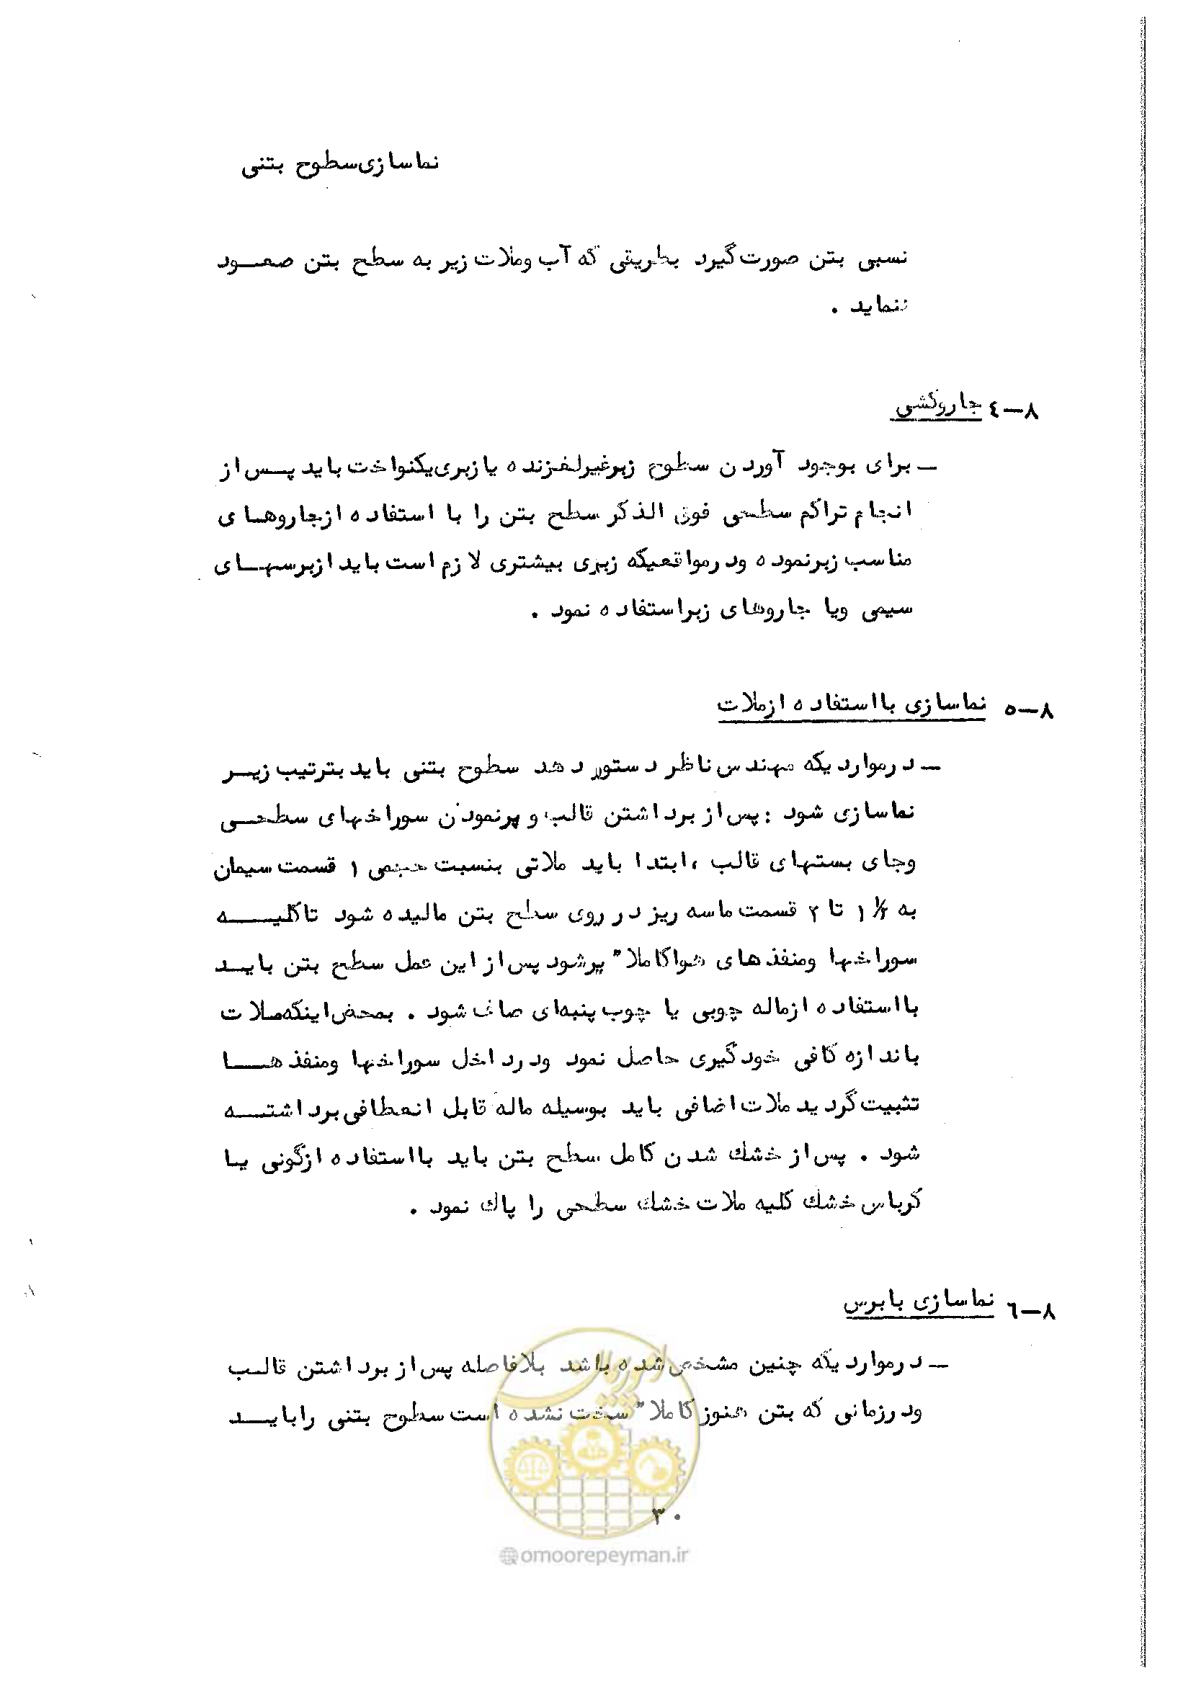 نماسازی سطوح بتنی
نسبی بتن صورت گیرد بطریقی که آب وملات زیر به سطح بتن صعود
ننماید .
۸-۴ جاروکشی
- برای بوجود آوردن سطوح زبرغیرلغزنده یا زبری یکنواخت باید پس از
انجام تراکم سطحی فوق الذکر سطح بتن را با استفاده ازجاروهای
مناسب زبرنموده ودرمواقعیکه زبری بیشتری لازم است باید ازبرسهای
سیمی ویا جاروهای زبراستفاده نمود .
۸-۵ نماسازی بااستفاده ازملات
- درمواردیکه مهندس ناظر دستور دهد سطوح بتنی باید بترتیب زیر
نماسازی شود : پس از برداشتن قالب و پرنمودن سوراخهای سطحی
وجای بستهای قالب ، ابتدا باید ملاتی بنسبت حجمی ۱ قسمت سیمان
به ۱ ۱/۲ تا ۲ قسمت ماسه ریز در روی سطح بتن مالیده شود تاکلیه
سوراخها ومنفذهای هواکاملا" پرشود پس از این عمل سطح بتن باید
بااستفاده ازماله چوبی یا چوب پنبه‌ای صاف شود . بمحض اینکه ملات
باندازه کافی خودگیری حاصل نمود ودرداخل سوراخها ومنفذها
تثبیت گردید ملات اضافی باید بوسیله ماله قابل انعطافی برداشته
شود . پس از خشک شدن کامل سطح بتن باید بااستفاده ازگونی یا
کرباس خشک کلیه ملات خشک سطحی را پاک نمود .
۸-۶ نماسازی بابرس
- درمواردیکه چنین مشخص شده باشد بلافاصله پس از برداشتن قالب
ودرزمانی که بتن هنوز کاملا" سخت نشده است سطوح بتنی راباید
امور پیمان
۳۰
@omoorepeyman.ir